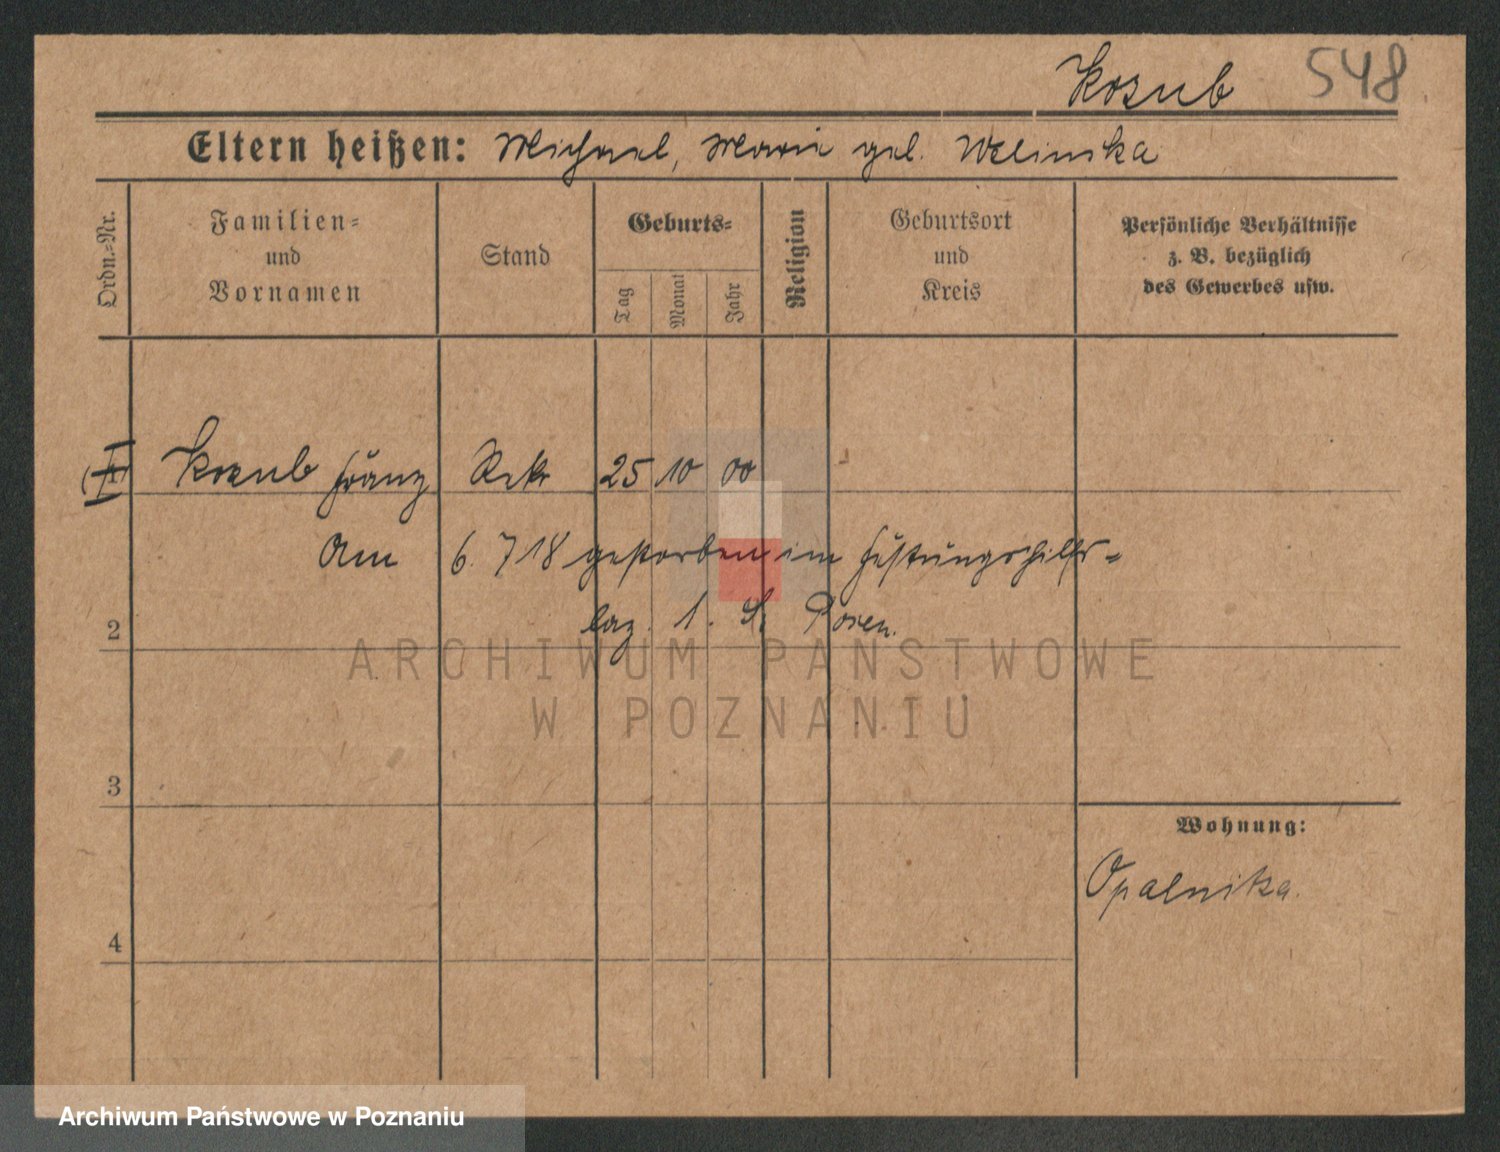 Kozub 548
Eltern heißen: Michael, Marie geb. Welinska
Ordn.=Nr.
Familien=
und
Vornamen
Stand
Geburts=
Tag
Monat
Jahr
Religion
Geburtsort
und
Kreis
Persönliche Verhältnisse
z. B. bezüglich
des Gewerbes usw.
Kozub Franz Rekr 25 10 00
Am 6. 7 18 gestorben im Festungshilfs-
2 laz. 1. Posen.
3
4
Wohnung:
Opalenitza.
ARCHIWUM PAŃSTWOWE
W POZNANIU
Archiwum Państwowe w Poznaniu